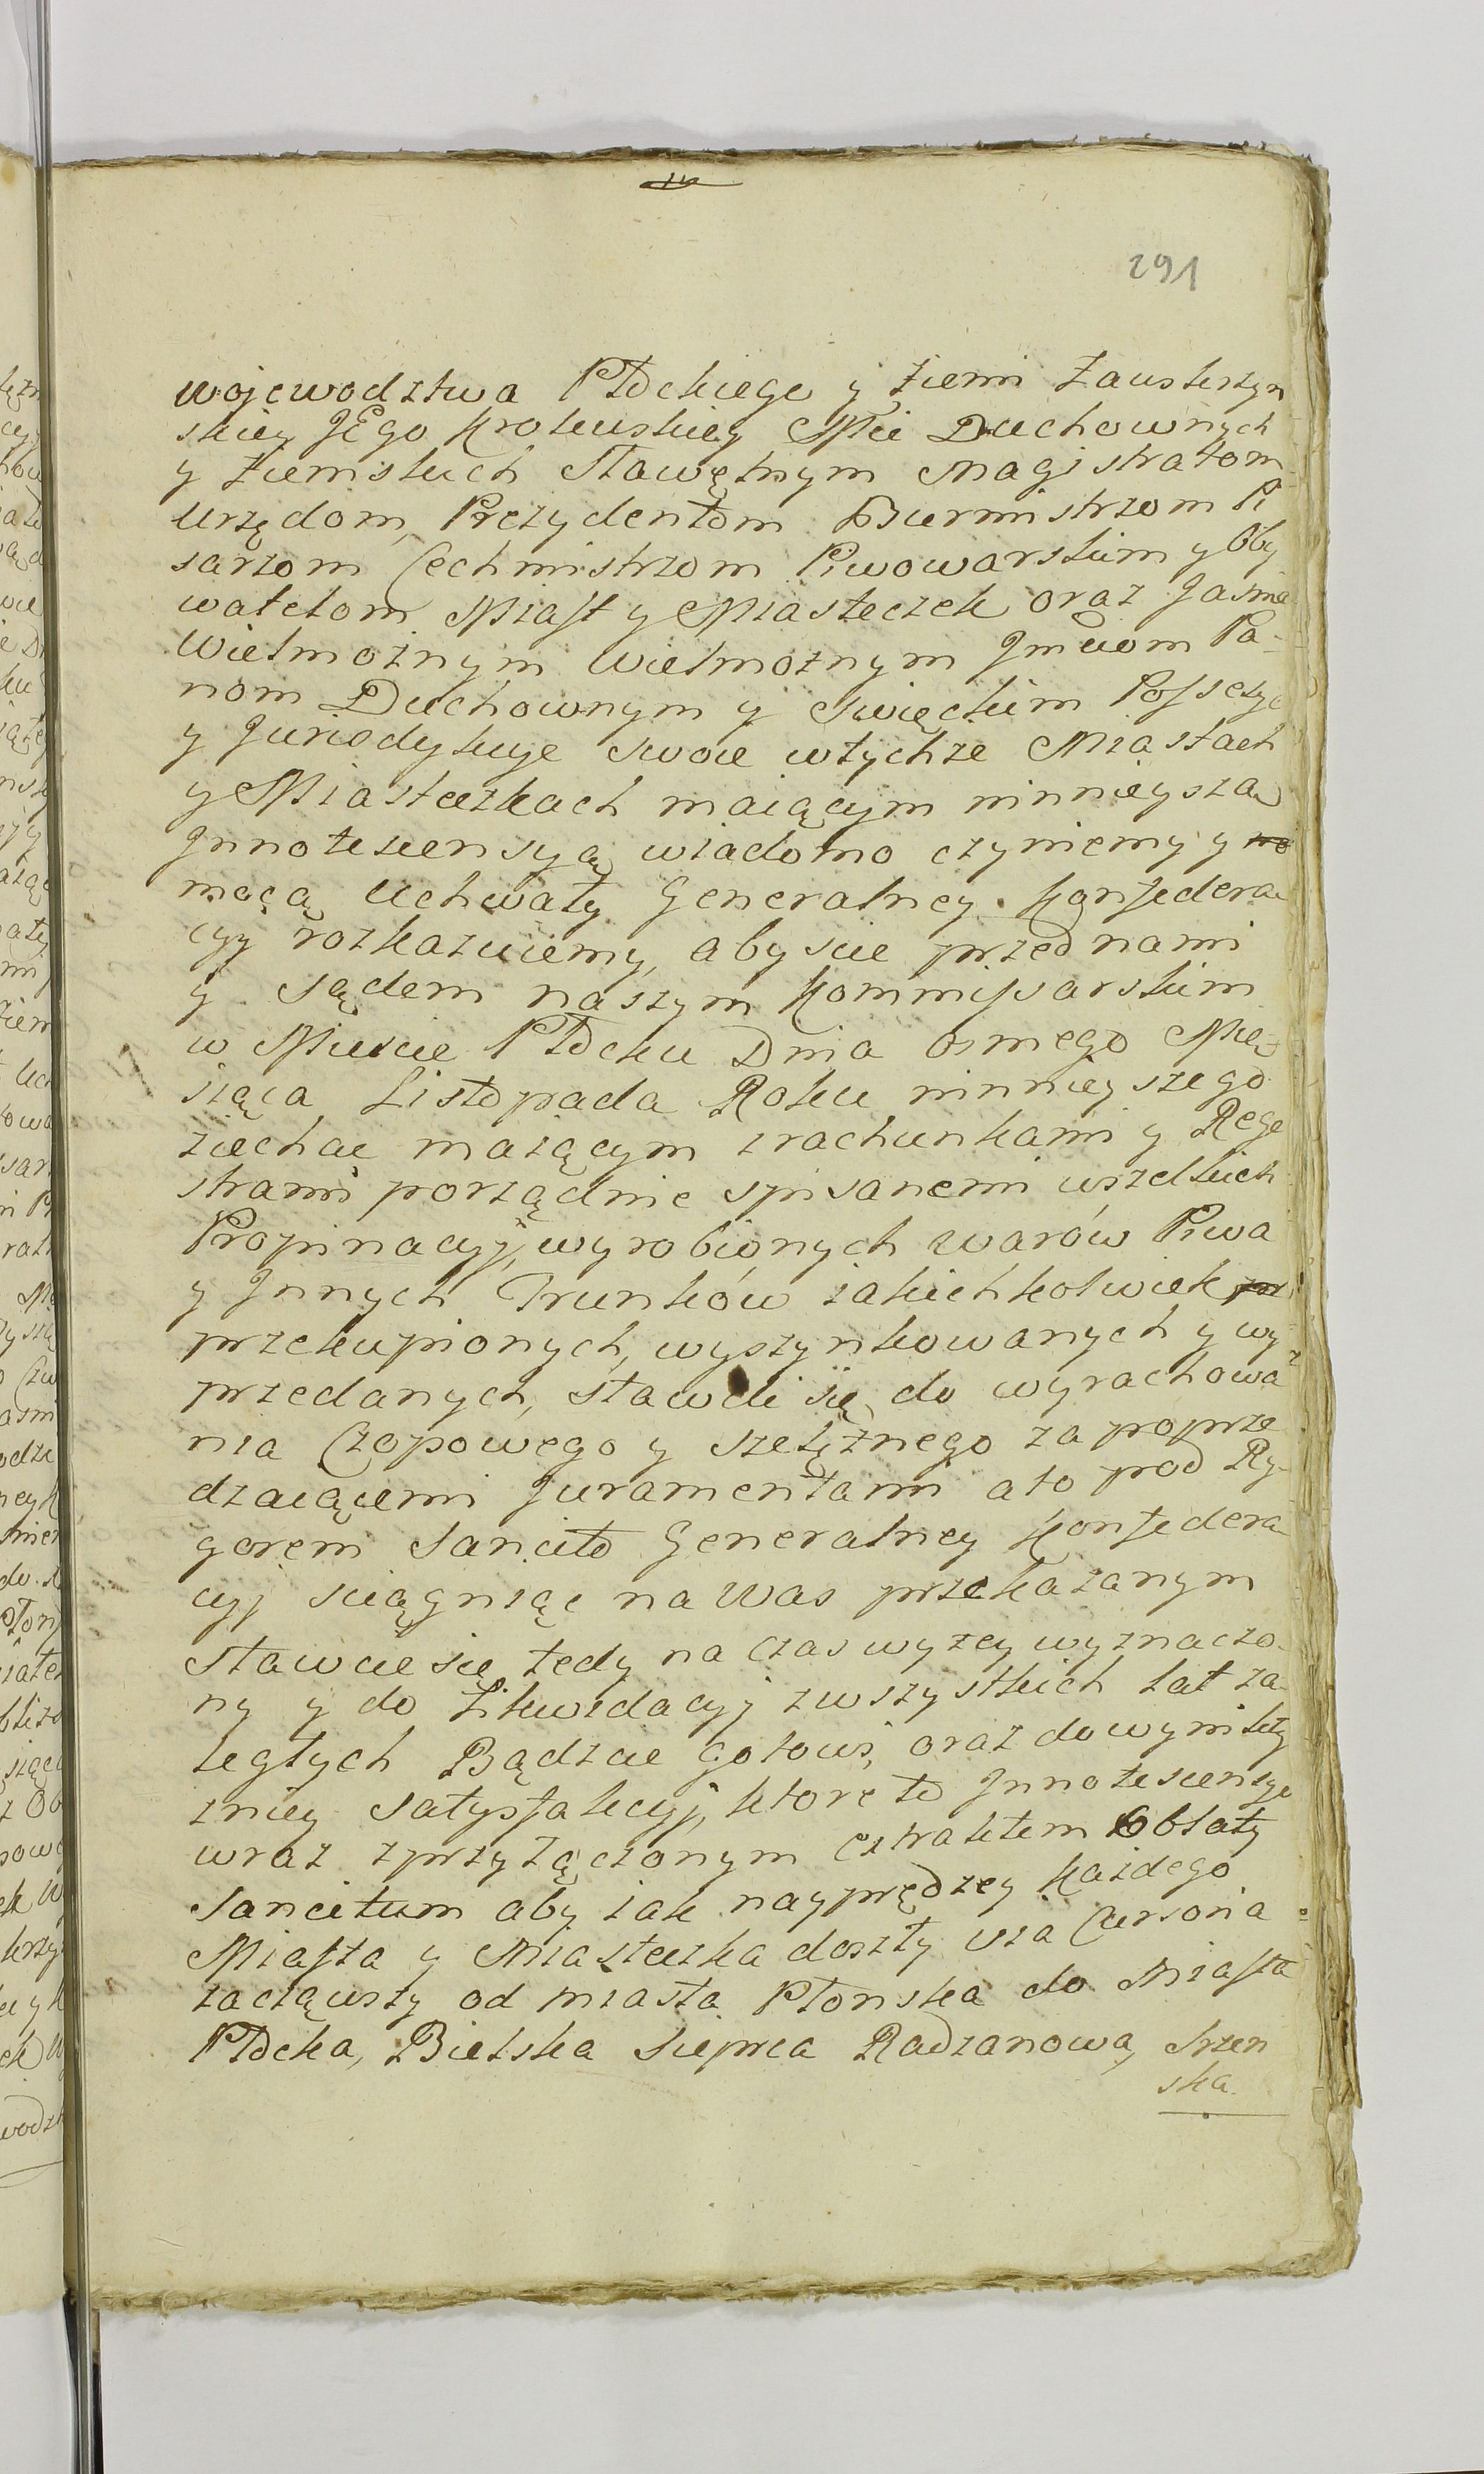 291
wojewodztwa Płockiego y Ziemi Zawskrzyn
skiey JEgo Krolewskiey Mci Duchownych
y Ziemskich Sławętnym Magistratom
Urzędom, Prezydentom Burmistrzom Pi
sarzom Cechmistrzom Piwowarskim y Oby
watelom Miast y Miasteczek oraz Jasnie
Wielmoznym Wielmoznym Jmciom Pa-
nom Duchownym y Swieckim Possesye
y Jurisdykcye swoie wtychze Miastach
y Miasteczkach maiącym ninnieyszą
Jnnotescensyą wiadomo czyniemy y
mocą Uchwały Generalney Konfedera
cyy rozkazuiemy, abyscie przed nami
y Sądem naszym Kommissarskim
w Miescie Płocku Dnia osmego Mie-
siąca Listopada Roku ninnieyszego
ziechac maiącym zrachunkami y Rege
strami porządnie spisanemi wszelkich
Propinacyj, wyrobionych warów Piwa
y Jnnych Trunków iakichkolwiek
przekupionych, wyszynkowanych y wy
przedanych, stawcie się do wyrachowa
nia Czopowego y szelęznego za poprze
dzaiącemi Juramentami a to pod Ry-
gorem Sancito Generalney Konfedera
cyj sciągnąc na Was przekazanym
Stawcie się tedy na czas wyzey wyznaczo-
ny y do Likwidacyj zwszystkich lat za-
ległych Bądzcie gotowi, oraz do wynikły
zniey satysfakcyj, ktore to Jnnotescensye
wraz zprzyłączonym extraktem Oblaty
Sancitum aby iak nayprędzey Kazdego
Miasta y Miasteczka doszły via Cursoria
zacząwszy od miasta Płonska do Miasta
Płocka, Bielska Sieprca Radzanowa, Strzen
ska.